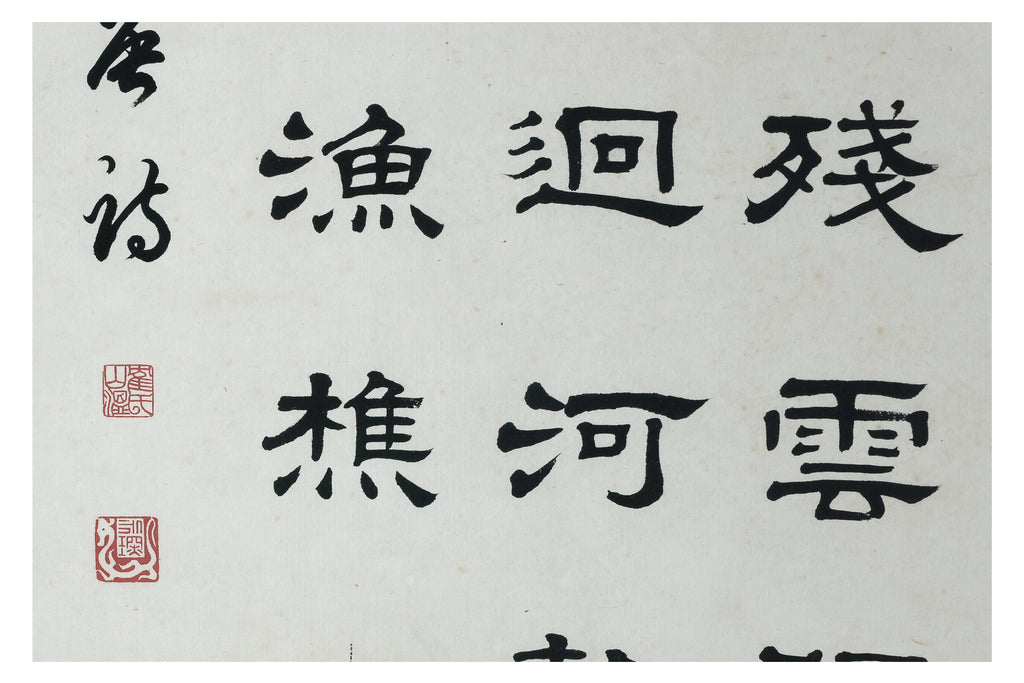 殘雲
迥河
漁樵
詩